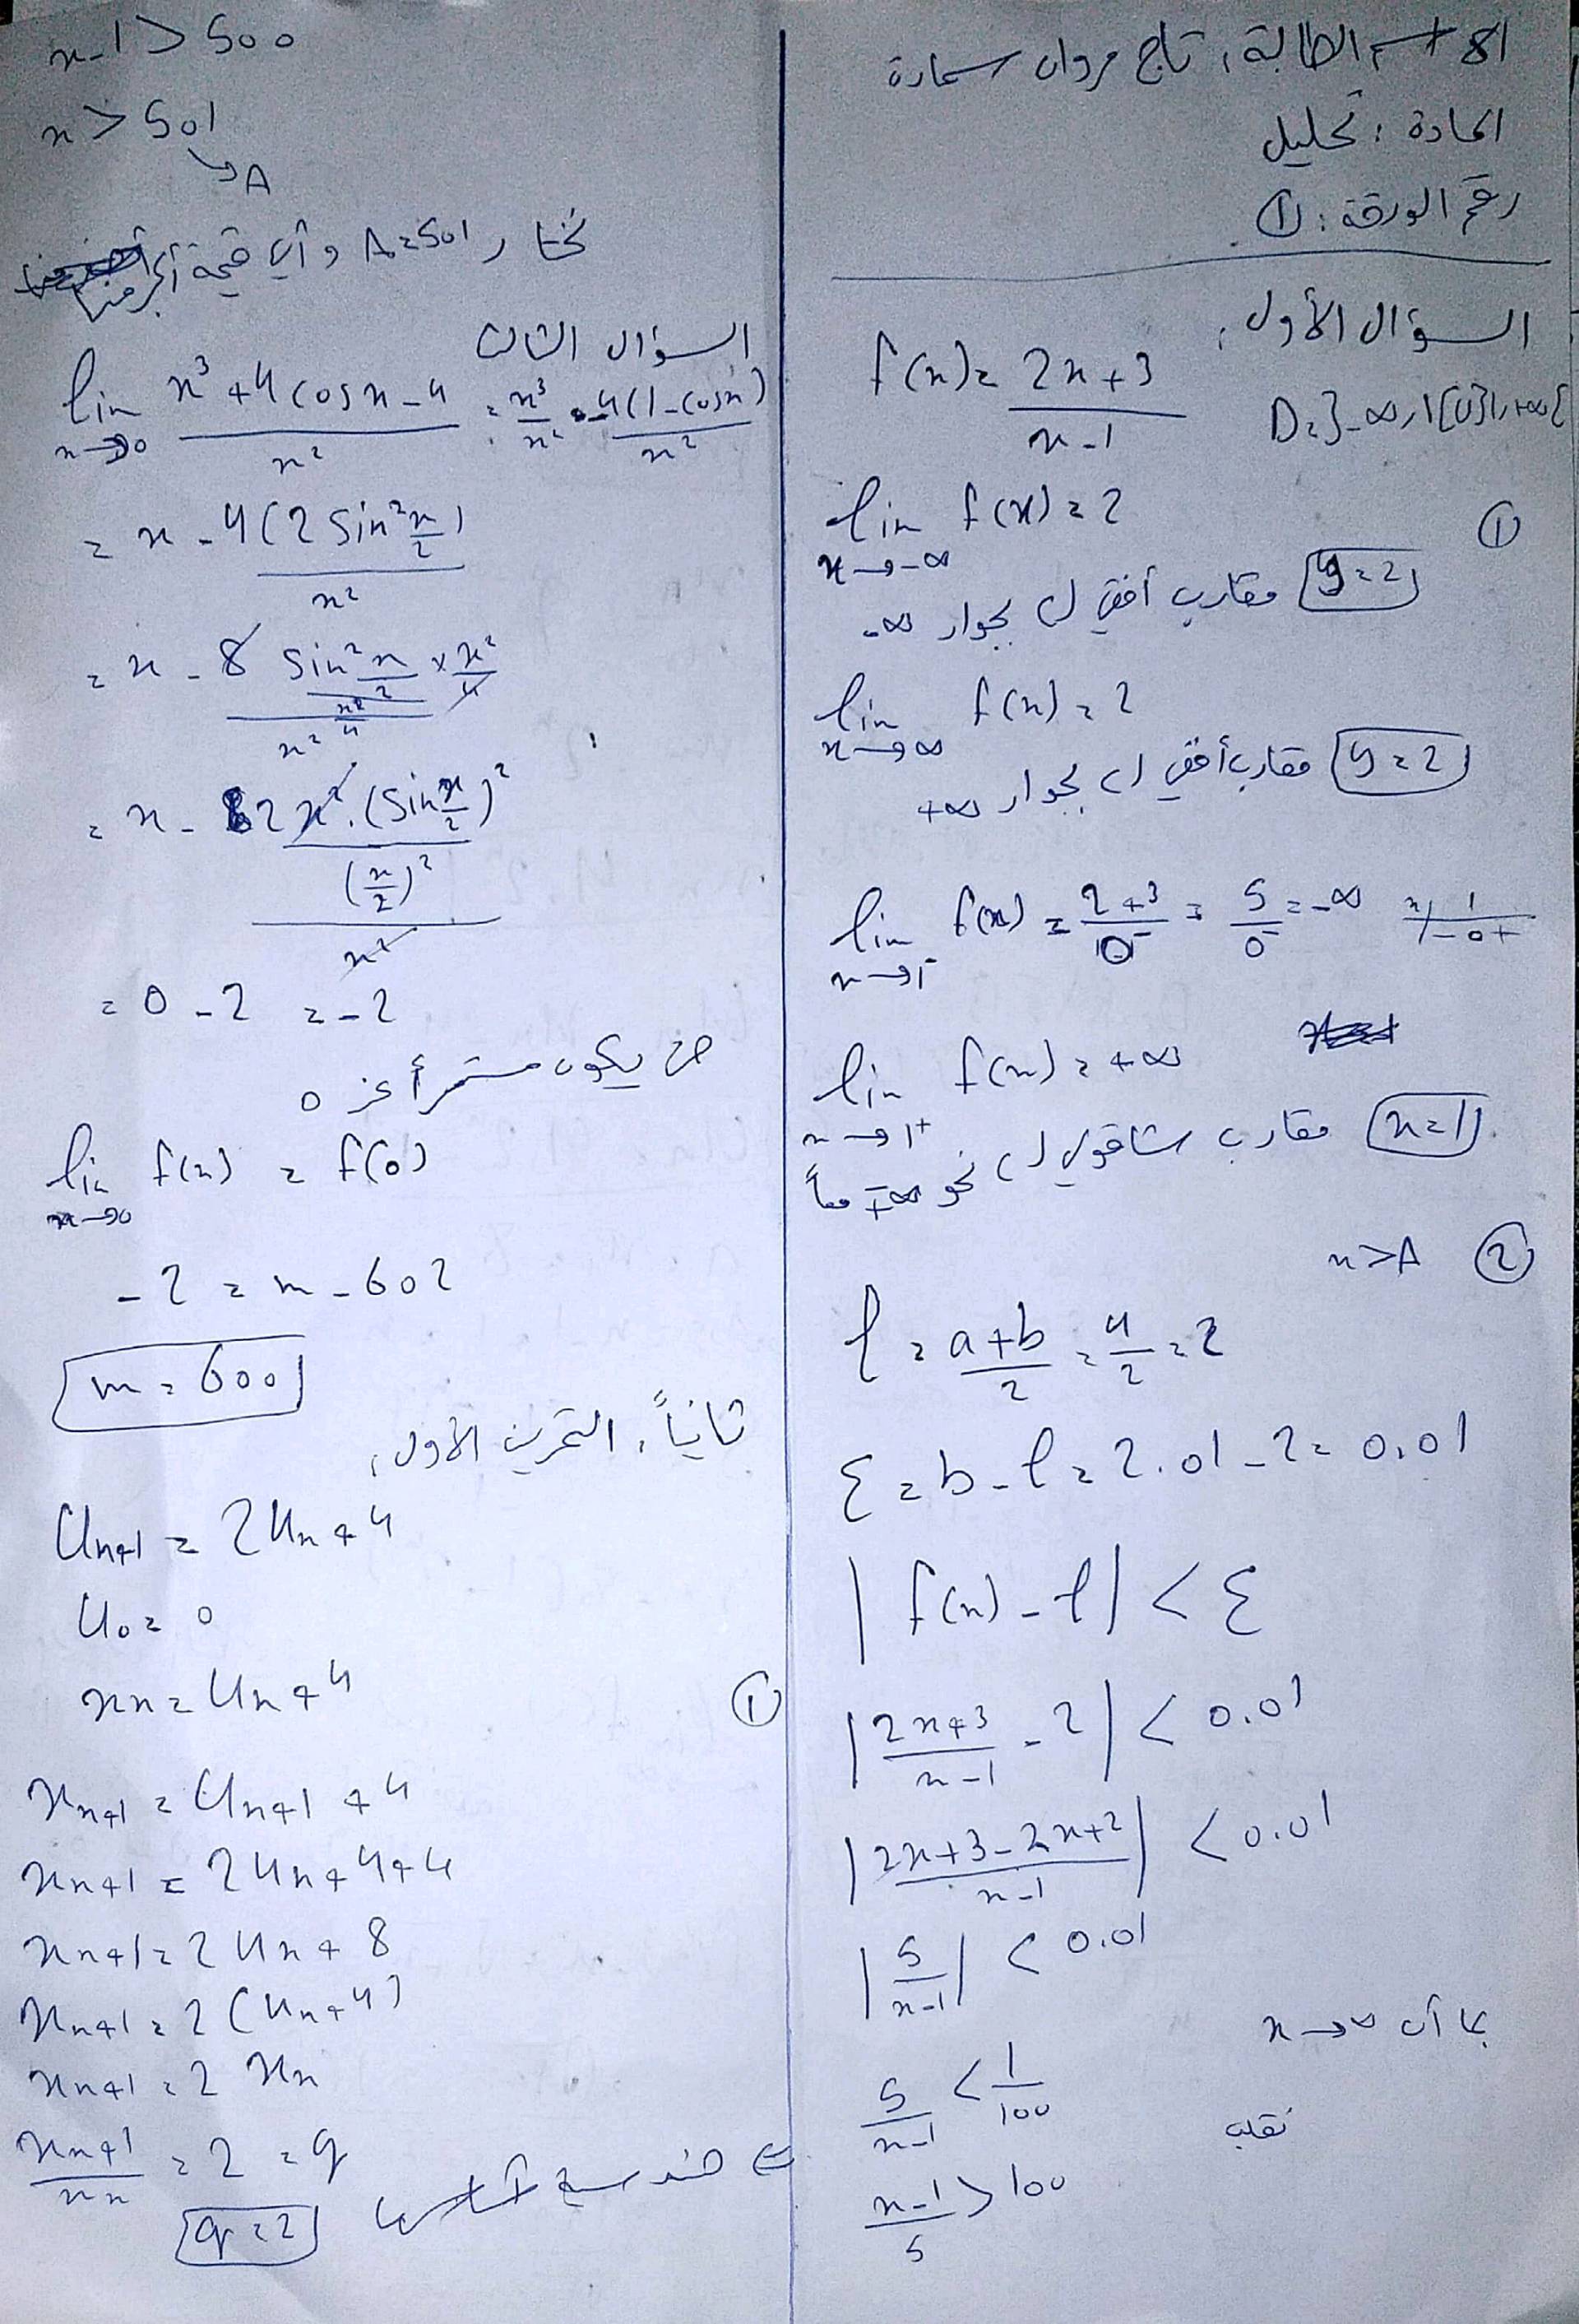 الاسم الطالبة: تاج مروان سمارة
المادة: تحليل
رقم الورقة: ①
السؤال الأول:
f(x) = (2x+3)/(x-1)
D = ]-∞, 1[ ∪ ]1, +∞[
①
lim x→-∞ f(x) = 2
y=2 مقارب أفقي لـ بجوار -∞
lim x→∞ f(x) = 2
y=2 مقارب أفقي لـ بجوار +∞
lim x→1⁻ f(x) = (2+3)/0⁻ = 5/0⁻ = -∞
x | 1
| - 0 +
lim x→1⁺ f(x) = +∞
x=1 مقارب شاقولي لـ نحو ∓∞ معاً
② x>A
l = (a+b)/2 = 4/2 = 2
ε = b - l = 2.01 - 2 = 0.01
|f(x) - l| < ε
|(2x+3)/(x-1) - 2| < 0.01
|(2x+3-2x+2)/(x-1)| < 0.01
|5/(x-1)| < 0.01
بما أن x→∞
5/(x-1) < 1/100
نقلب
(x-1)/5 > 100
x-1 > 500
x > 501
↳ A
نختار A=501 وأي قيمة أكبر منها
السؤال الثالث
lim x→0 (x³+4cosx-4)/x² = x³/x² - 4(1-cosx)/x²
= x - 4(2 sin² x/2)/x²
= x - 8 (sin² x/2)/(x²/4) × x²/4 / x²
= x - 2x². (sin x/2)²/(x/2)² / x²
= 0 - 2 = -2
حتى يكون مستمراً عند 0
lim x→0 f(x) = f(0)
-2 = m - 602
m = 600
ثانياً: التمرين الأول:
Un+1 = 2Un + 4
U0 = 0
xn = Un + 4
①
xn+1 = Un+1 + 4
xn+1 = 2Un + 4 + 4
xn+1 = 2Un + 8
xn+1 = 2(Un + 4)
xn+1 = 2 xn
xn+1/xn = 2 = q
⇐ هندسية أساسها
q = 2